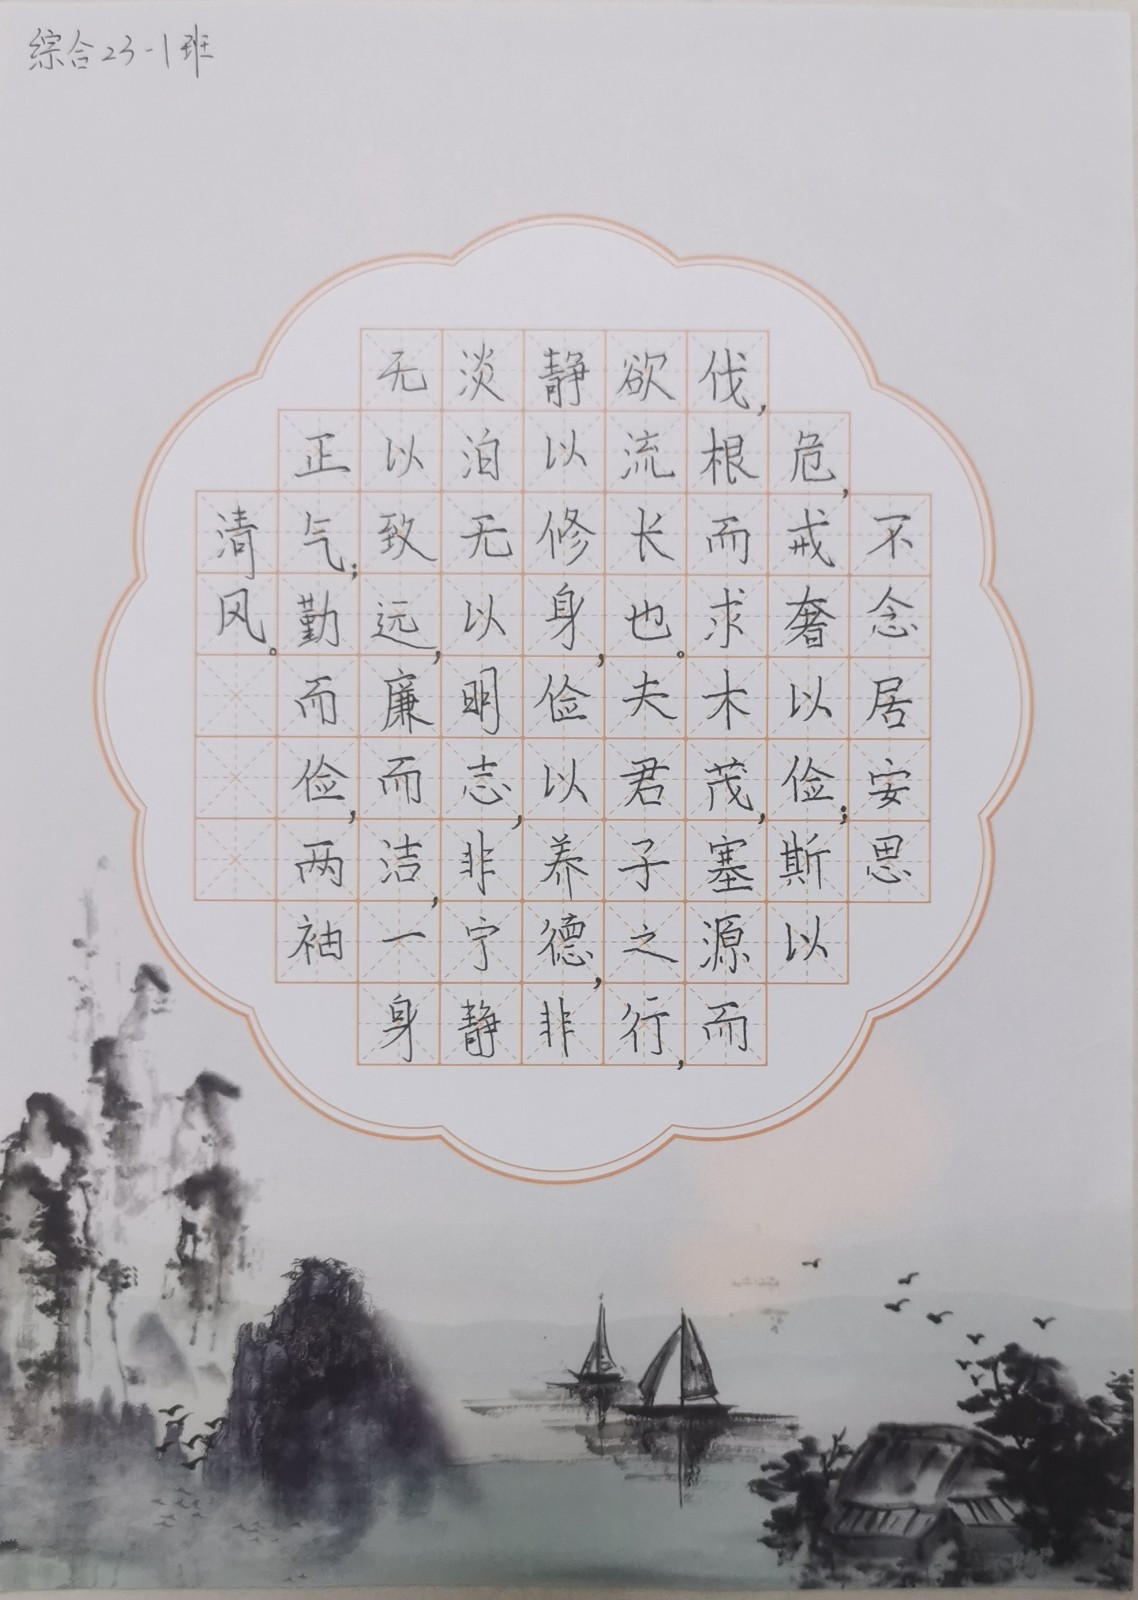 综合23-1班
不念居安思
危，戒奢以俭；斯以
伐，根而求木茂，塞源而
欲流长也。夫君子之行，
静以修身，俭以养德，非
淡泊无以明志，非宁静
无以致远，廉而洁，一身
正气；勤而俭，两袖
清风。